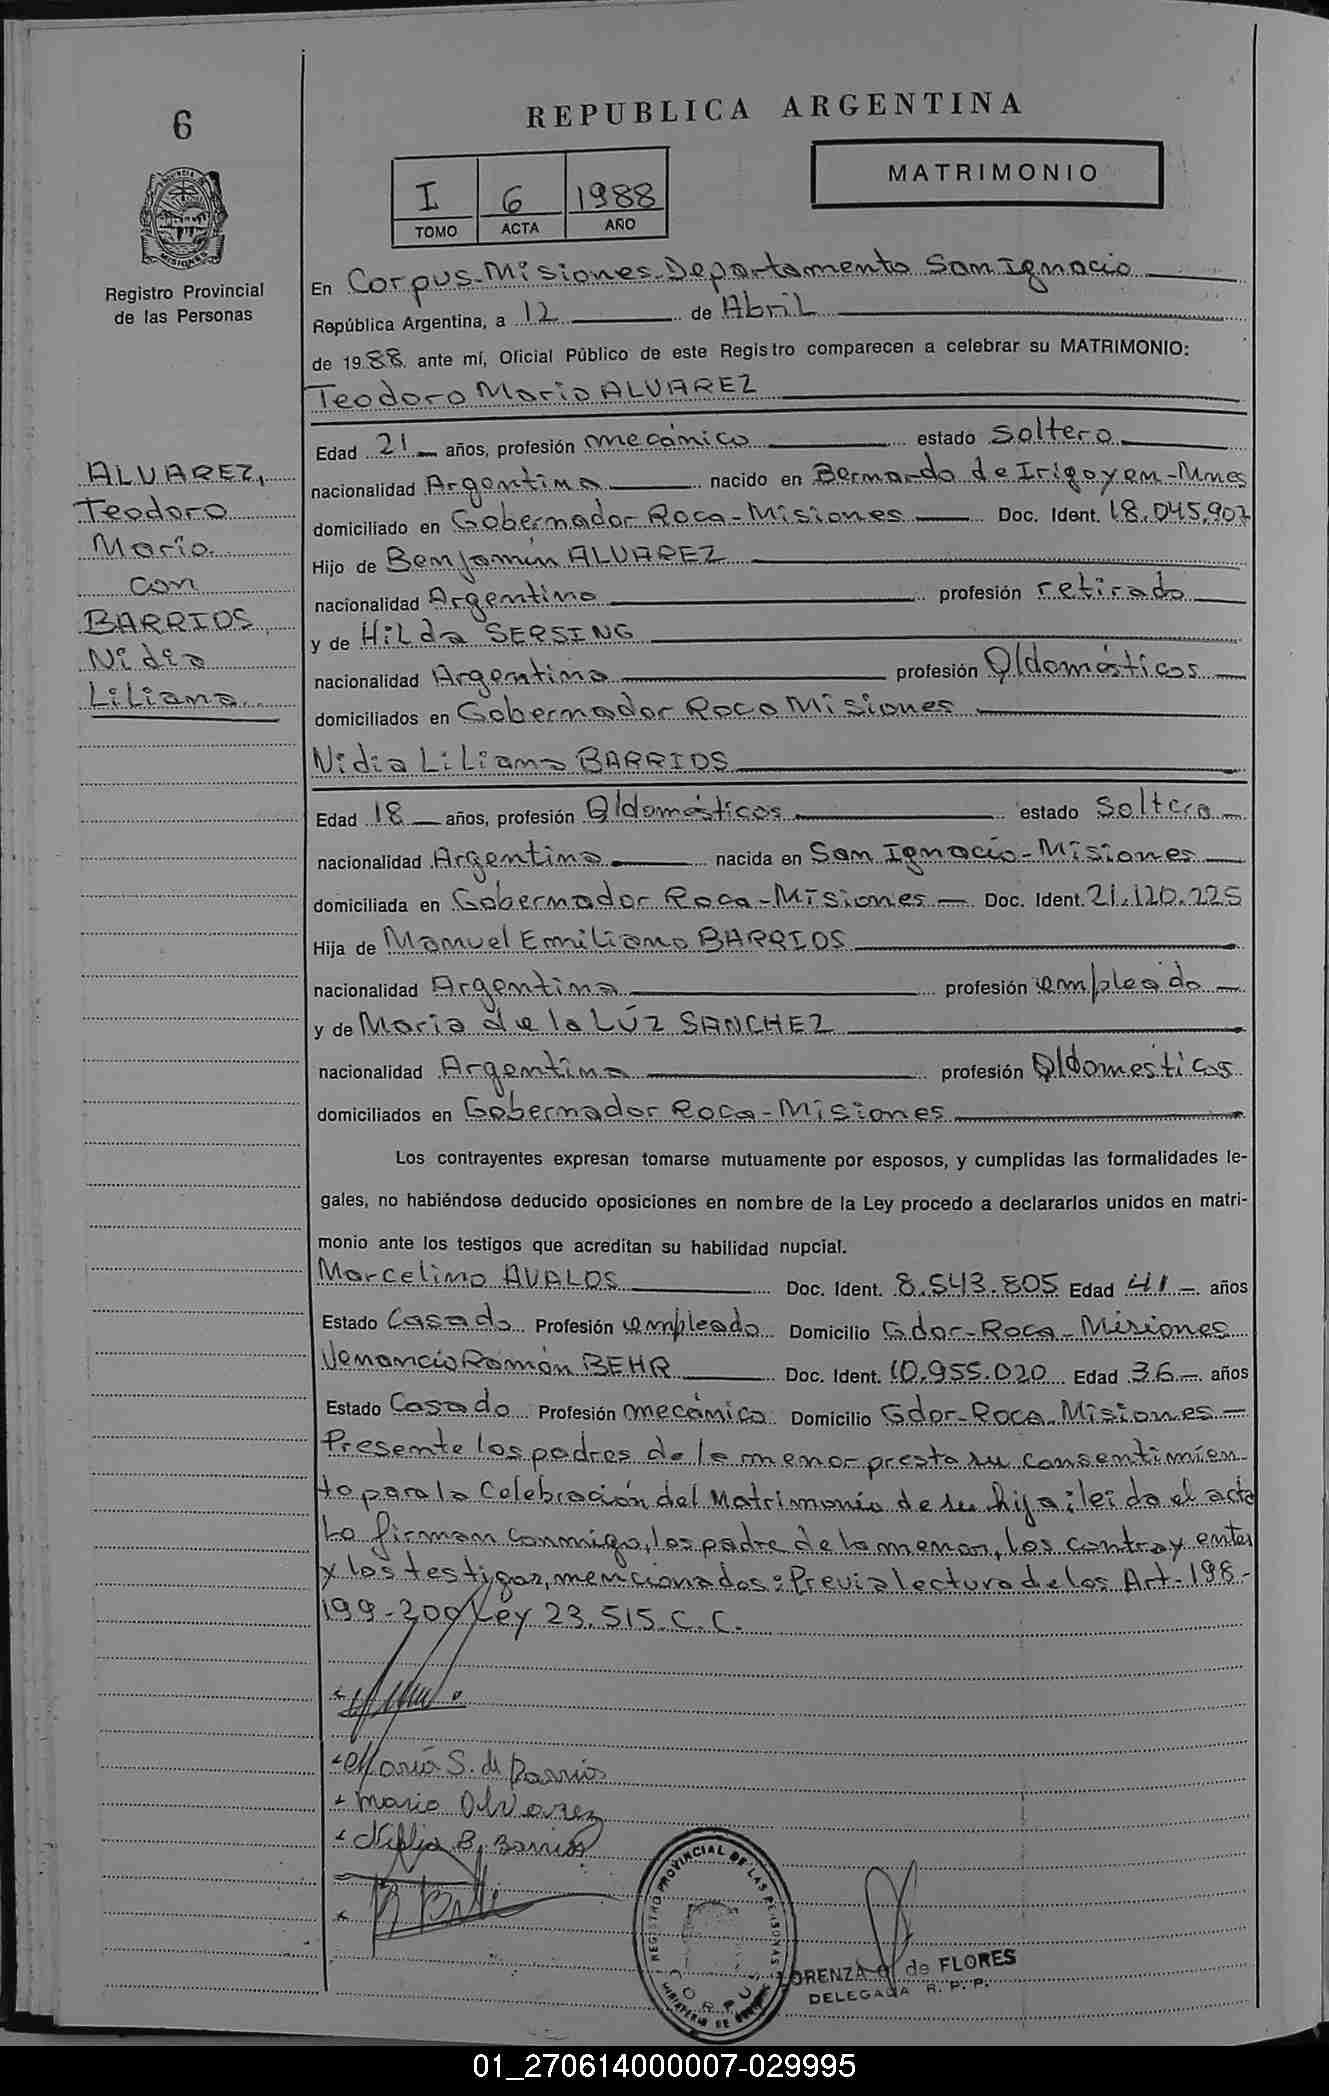 6
REPUBLICA ARGENTINA
MATRIMONIO
I 6 1988
TOMO ACTA AÑO
Registro Provincial
de las Personas
En Corpus-Misiones-Departamento San Ignacio
República Argentina, a 12 de Abril
de 1988 ante mí, Oficial Público de este Registro comparecen a celebrar su MATRIMONIO:
Teodoro Mario ALVAREZ
Edad 21 años, profesión mecánico estado Soltero
ALVAREZ,
Teodoro
Mario
con
BARRIOS
Nidia
Liliana
nacionalidad Argentina nacido en Bernardo de Irigoyen-Mnes
domiciliado en Gobernador Roca-Misiones Doc. Ident. 18.045.907
Hijo de Benjamín ALVAREZ
nacionalidad Argentino profesión retirado
y de HiLda SERSING
nacionalidad Argentina profesión Q/domésticos
domiciliados en Gobernador Roca Misiones
Nidia LiLiana BARRIOS
Edad 18 años, profesión Q/domésticos estado Soltera
nacionalidad Argentina nacida en San Ignacio-Misiones
domiciliada en Gobernador Roca-Misiones Doc. Ident. 21.120.225
Hija de Manuel Emiliano BARRIOS
nacionalidad Argentina profesión empleado
y de Maria de la LÚZ SANCHEZ
nacionalidad Argentina profesión Q/domésticos
domiciliados en Gobernador Roca-Misiones
Los contrayentes expresan tomarse mutuamente por esposos, y cumplidas las formalidades le-
gales, no habiéndose deducido oposiciones en nombre de la Ley procedo a declararlos unidos en matri-
monio ante los testigos que acreditan su habilidad nupcial.
Marcelino AVALOS Doc. Ident. 8.543.805 Edad 41 años
Estado Casado Profesión empleado Domicilio Gdor-Roca-Misiones
Venancio Román BEHR Doc. Ident. 10.955.020 Edad 36 años
Estado Casado Profesión mecánico Domicilio Gdor-Roca-Misiones
Presente los padres de la menor presta su consentimien
to para la Celebración del Matrimonio de su hija; leída el acta
Lo firman conmigo, los padre de la menor, los contrayentes
y los testigos, mencionados: Previa lectura de los Art-198-
199-200 Ley 23.515 C.C.
María S. de Barrios
Mario Alvarez
Barrios
REGISTRO PROVINCIAL DE LAS PERSONAS
CORPUS
LORENZA de FLORES
DELEGADA R. P. P.
01_270614000007-029995